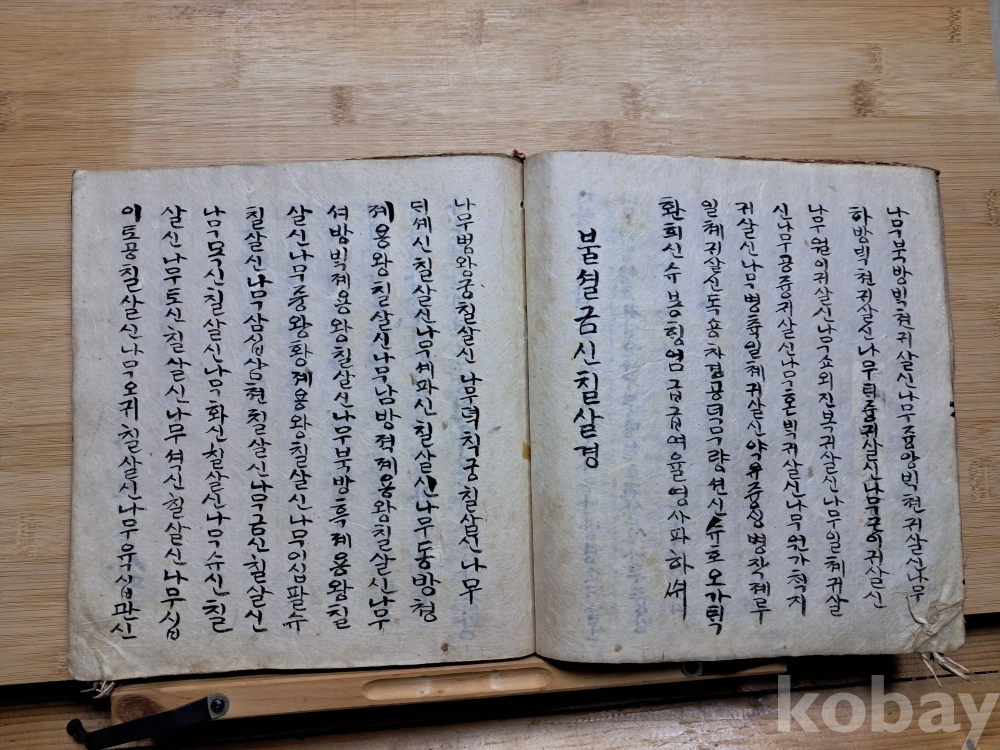 나무북방빅현귀살신나무즁앙빅현귀살신나무
하방빅현귀살신나무 즁귀살신나무군이귀살신
나무원이귀살신나무쇼외진복귀살신나무일쳬귀살
신나무공즁귀살신나무혼빅귀살신나무원가쳑지
귀살신나무병츅일쳬귀살신약유즁싱병장졔루
일쳬귀살신독숑차경공덕무량션신슈호오가틱
환희신슈봉힝엄급급여율영사파하셔
불셜금신칠살경
나무범왕궁칠살신 나무뎍칙궁칠살신나무
뒤셰신칠살신나무셰파신칠살신나무동방쳥
졔용왕칠살신나무남방젹졔용왕칠살신나무
셔방빅졔용왕칠살신나무북방흑졔용왕칠
살신나무즁왕황졔용왕칠살신나무이십팔슈
칠살신나무삼십삼쳔칠살신나무금신칠살신
나무목신칠살신나무화신칠살신나무슈신칠
살신나무토신칠살신나무셕신칠살신나무십
이토공칠살신나무오귀칠살신나무유십관신
kobay